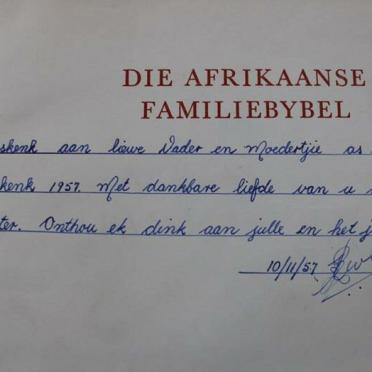 DIE AFRIKAANSE
FAMILIEBYBEL
skenk aan liewe Vader en Moedertjie as
skenk 1957. Met dankbare liefde van u
ter. Onthou ek dink aan julle en het j
10/11/57